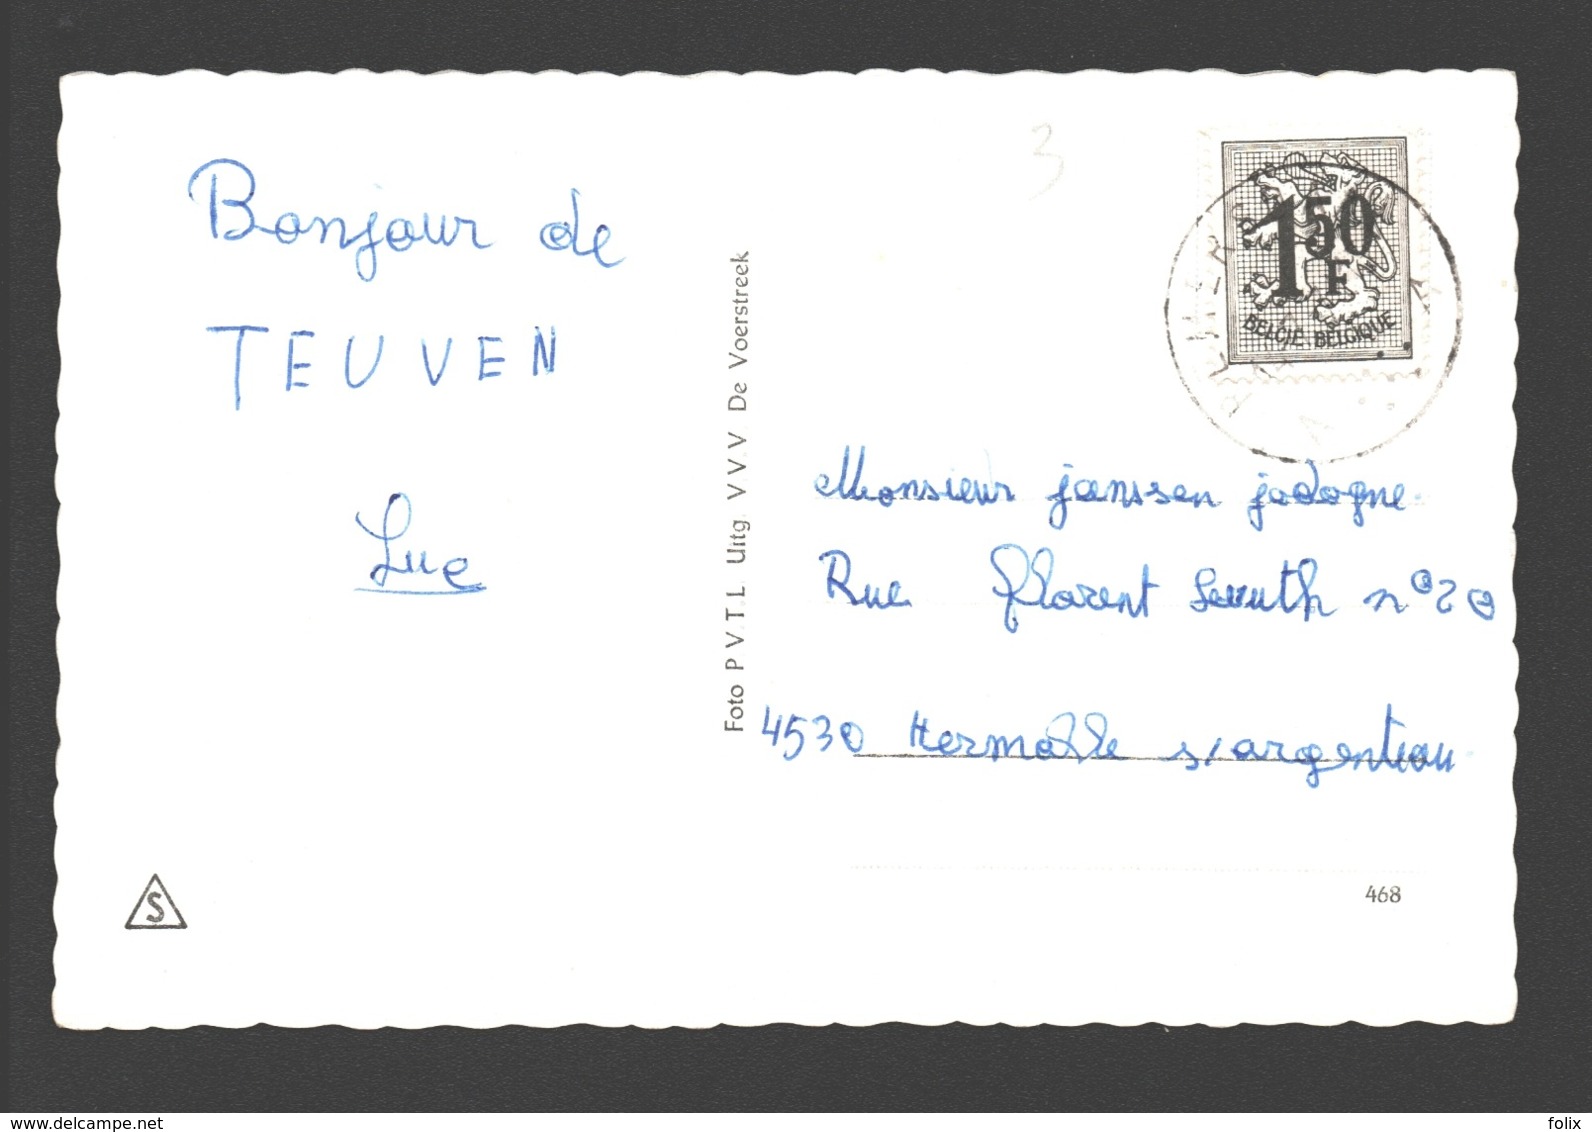 3
Bonjour de
TEUVEN
Luc
Foto P.V.T.L. Uitg. V.V.V. De Voerstreek
1 50 F
BELGIE BELGIQUE
Monsieur janssen jodogne.
Rue florent n° 20
4530 Hermalle s/argenteau
S
468
www.delcampe.net
folix